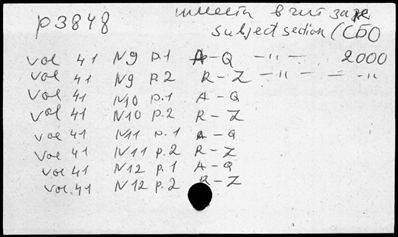 p3848 имеется в чит зале
subject section (СБО)
vol 41 N9 p.1 A-Q -"- 2000
vol 41 N9 p.2 R-Z -"- = -"-
vol 41 N10 p.1 A-Q
vol 41 N10 p.2 R-Z
vol 41 N11 p.1 A-Q
vol 41 N11 p.2 R-Z
vol.41 N12 p.1 A-Q
vol.41 N12 p.2 R-Z